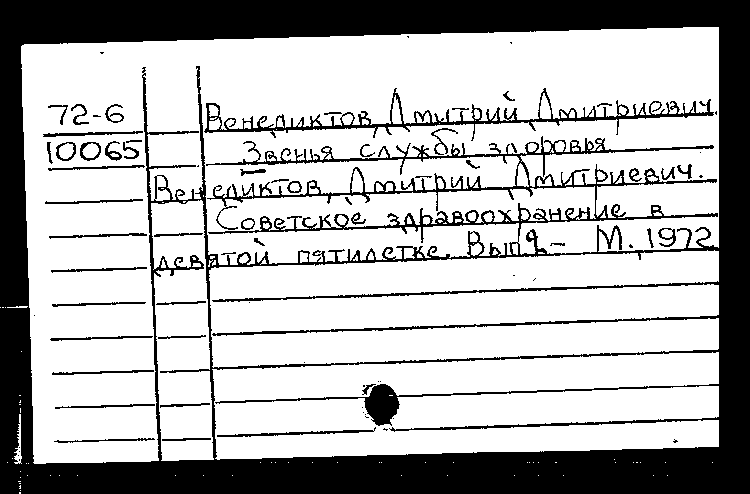 72-6 Венедиктов, Дмитрий Дмитриевич.
10065 Звенья службы здоровья
Венедиктов, Дмитрий Дмитриевич.
Советское здравоохранение в
девятой пятилетке. Вып. – М., 1972